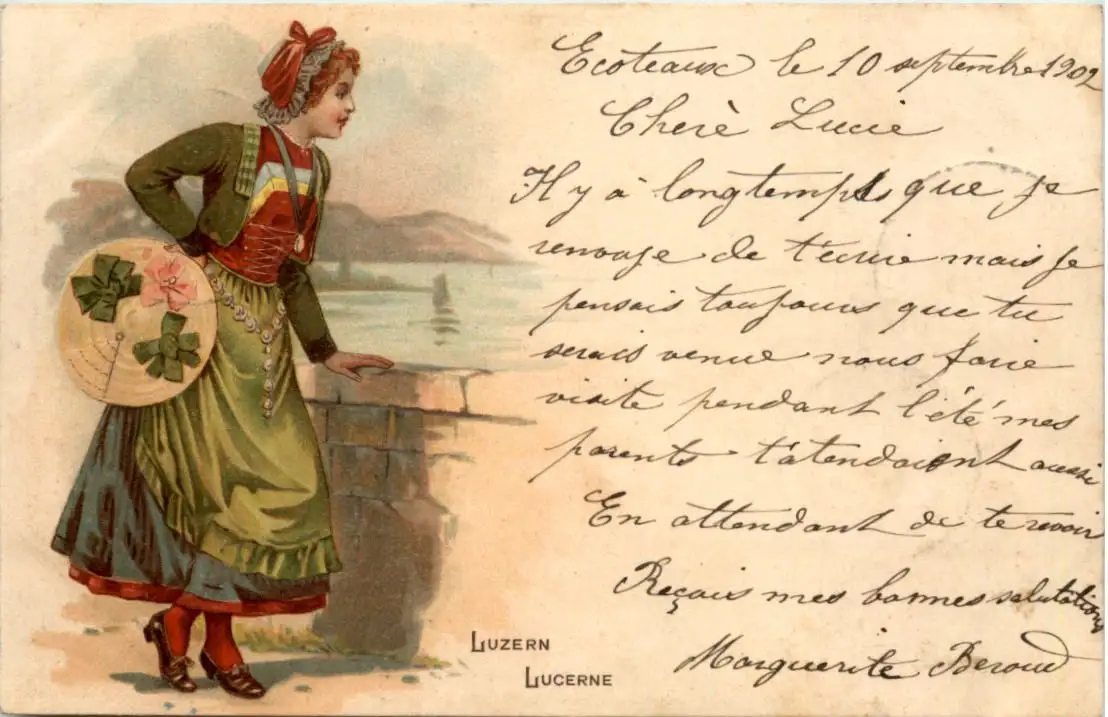 Ecoteaux le 10 septembre 1902
Cherè Lucie
Il y à longtemps que je
renvoje de t'ecrire mais je
pensais toujours que tu
serais venue nous faire
visite pendant l'été mes
parents t'atendaient aussi
En attendant de te revoir
Reçais mes bonnes salutations
Marguerite Beroud
LUZERN
LUCERNE